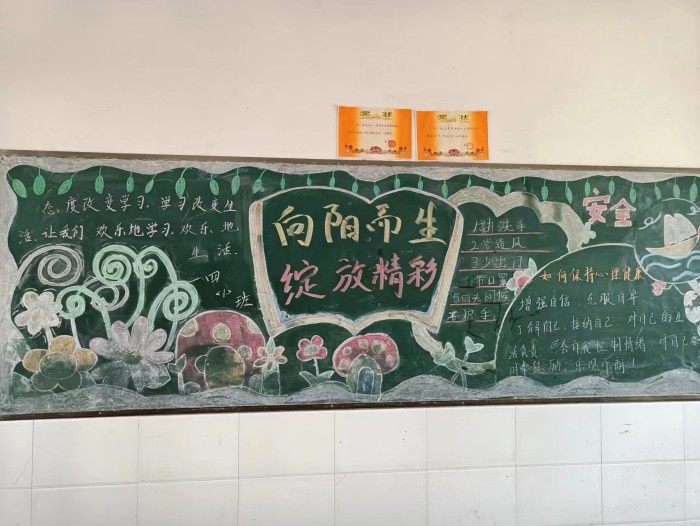 奖状
奖状
态度改变学习、学习改变生
活、让我们欢乐地学习、欢乐地
生活.
一四
小班
向阳而生
绽放精彩
1勤洗手
2常通风
3少出门
口罩
5勿去问候
不握手
安全
如何保持心理健康
增强自信、克服自卑
了解自己、接纳自己、对自己的
活负责、学会自我控制情绪、对自己
乐观开朗！